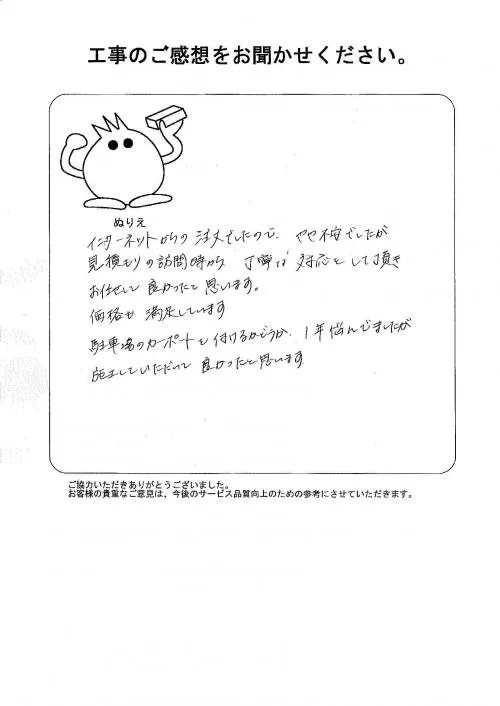 工事のご感想をお聞かせください。
ぬりえ
インターネットからの注文でしたので、やや不安でしたが
見積もりの訪問時から丁寧な対応をして頂き
お任せして良かったと思います。
価格も満足しています
駐車場のカーポートを付けるかどうか、1年悩んでましたが
施工していただいて良かったと思います
ご協力いただきありがとうございました。
お客様の貴重なご意見は、今後のサービス品質向上のための参考にさせていただきます。